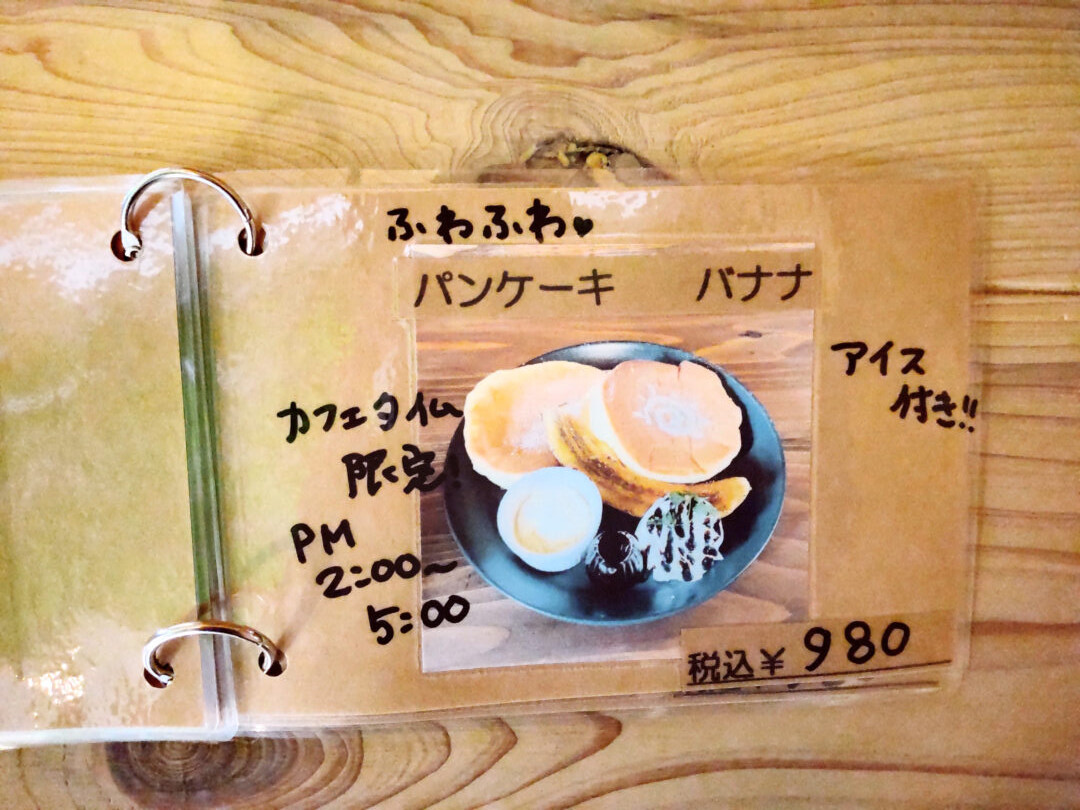 ふわふわ♥
パンケーキ　バナナ
アイス
付き!!
カフェタイム
限定!
PM
2:00〜
5:00
税込￥980